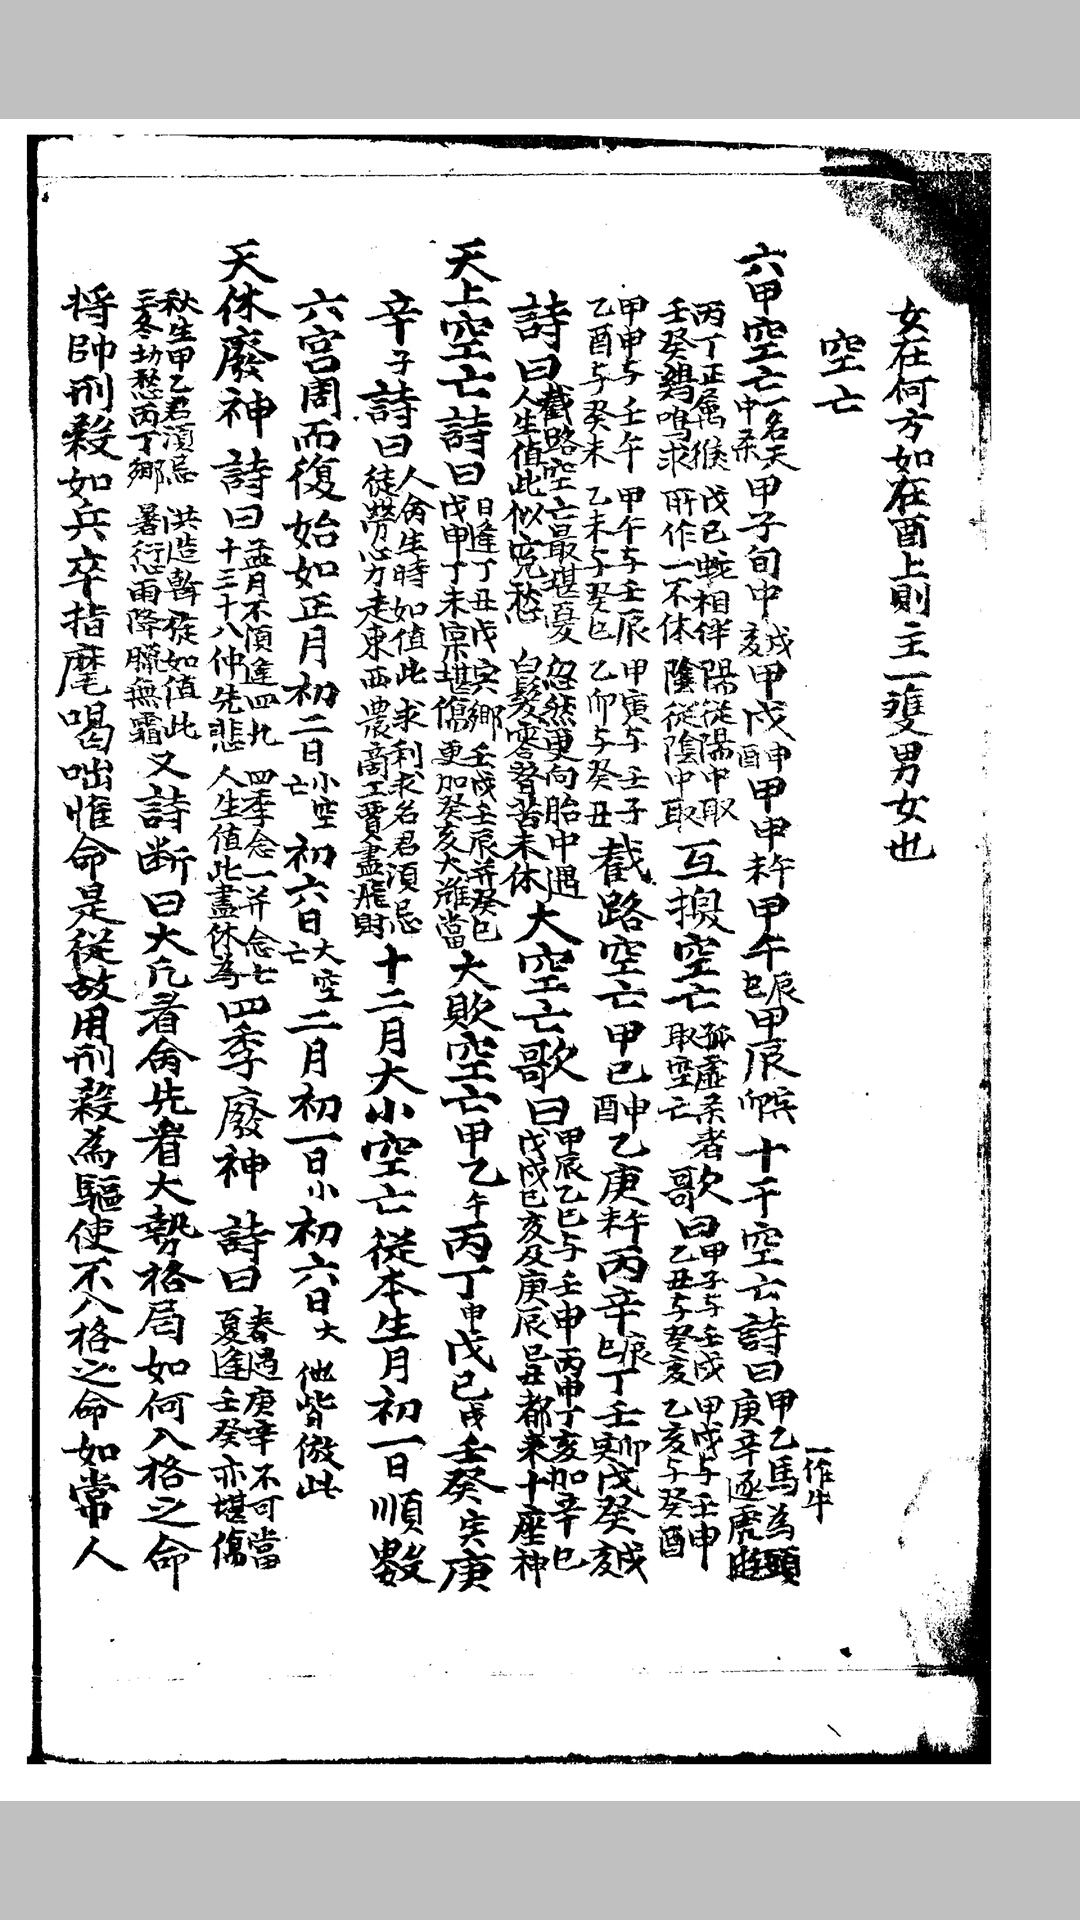 女在何方如在酉上則主一雙男女也
空亡
六甲空亡一名天中杀甲子旬中戌亥甲戌申酉甲申午未甲午辰巳甲辰寅卯十干空亡詩曰甲乙馬為頭庚辛逐虎遊
一作牛
丙丁正属猴戊己蛇相伴陽從陽中取壬癸鷄鳴求所作一不休陰從陰中取互換空亡孤虛杀者取空亡歌曰甲子与壬戌甲戌与壬申乙丑与癸亥乙亥与癸酉
甲申与壬午甲午与壬辰甲寅与壬子乙酉与癸未乙未与癸巳乙卯与癸丑截路空亡甲己申酉乙庚午未丙辛辰巳丁壬寅卯戊癸戌亥
詩曰截路空亡最堪憂忽然更向胎中遇人生值此似寃愁白髮零替苦未休大空亡歌曰甲辰乙巳与壬申丙申丁亥加辛巳戊戌己亥及庚辰己丑都來十座神
天上空亡詩曰日逢丁丑戊寅鄉壬戌壬辰并癸巳戊申丁未禀堪傷更加癸亥大难當大敗空亡甲乙午丙丁申戊己戌壬癸寅庚
辛子詩曰人命生時如值此求利求名君須忌徒勞心力走東西農商工賈盡飛財十二月大小空亡從本生月初一日順數
六宮周而復始如正月初二日小空亡初六日大空亡二月初一日小初六日大他皆倣此
天休廢神詩曰孟月不須逢四九四季念一并念七十三十八仲先悲人生值此盡休為四季廢神詩曰春遇庚辛不可當夏逢壬癸亦堪傷
秋生甲乙君須忌洪造斡旋如值此三冬切愁丙丁鄉暑愆雨降臘無霜又詩断曰大凢看命先看大勢格局如何入格之命
将帥刑殺如兵卒指麾喝咄惟命是從故用刑殺為驅使不入格之命如常人